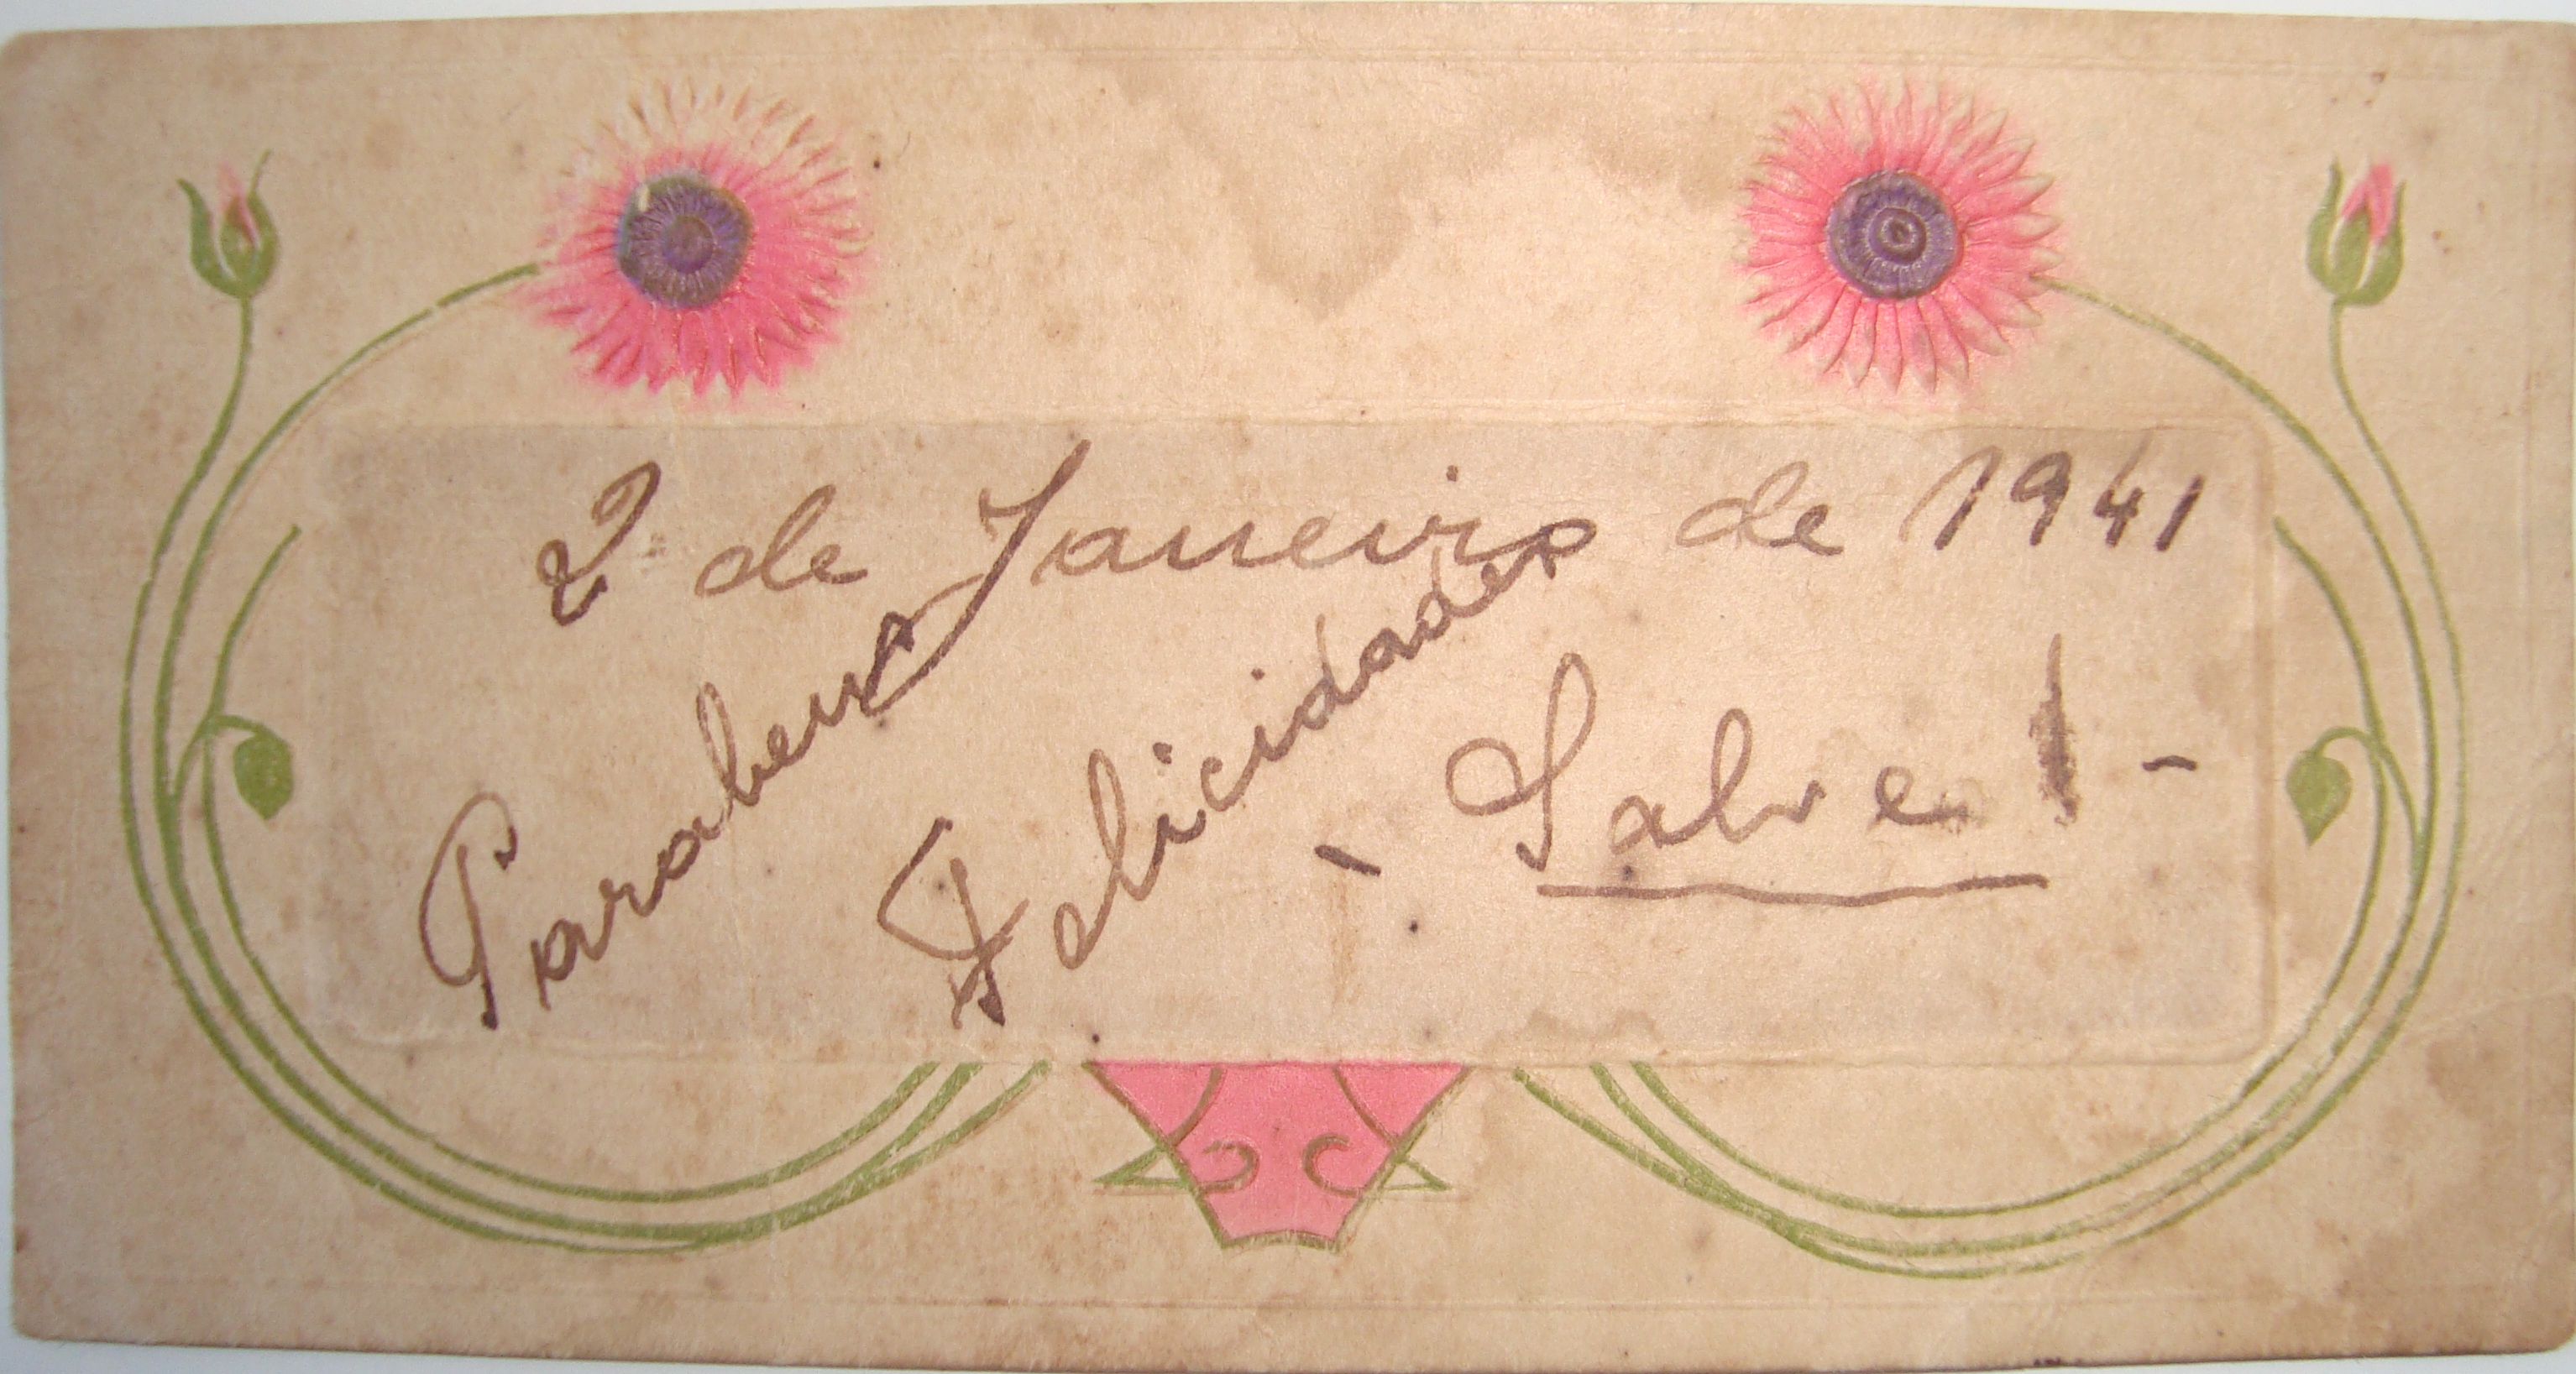 2 de Janeiro de 1941
Parabens
Felicidades
- Salve! -